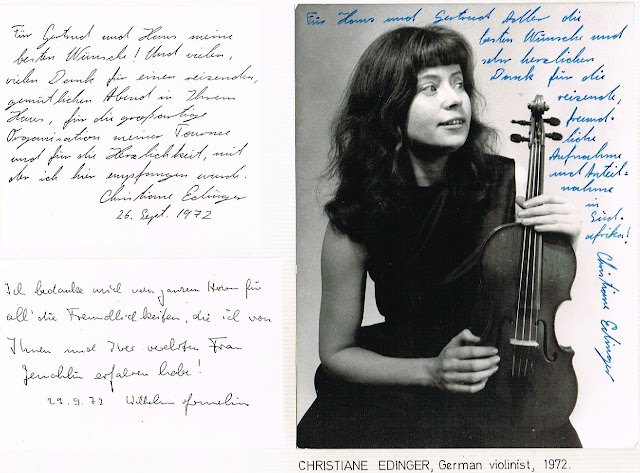 Für Gertrud und Hans meine
besten Wünsche! Und vielen,
vielen Dank für einen reizenden,
gemütlichen Abend in Ihrem
Haus, für die großartige
Organisation meiner Tournee
und für die Herzlichkeit, mit
der ich hier empfangen wurde.
Christiane Edinger
26. Sept. 1972
Ich bedanke mich von ganzem Herzen für
all' die Freundlichkeiten, die ich von
Ihnen und Ihrer verehrten Frau
Gemahlin erfahren habe!
29.9.72 Wilhelm
Für Hans und Gertrud Adler die
besten Wünsche und
sehr herzlichen
Dank für die
reizende,
freund-
liche
Aufnahme
und Anteil-
nahme
in
Süd-
afrika!
Christiane Edinger
CHRISTIANE EDINGER, German violinist, 1972.